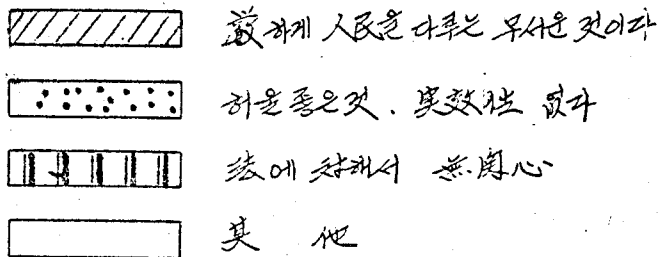 嚴하게 人民을 다루는 무서운 것이다
허울 좋은 것. 実效性 없다
法에 対해서 無関心
其 他